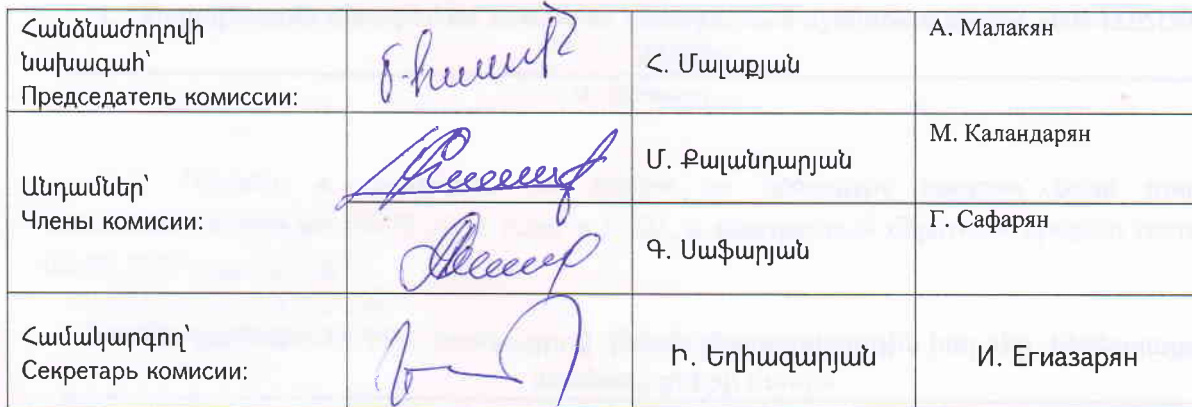 Հանձնաժողովի
նախագահ՝
Председатель комиссии:
Հ. Մալաքյան
А. Малакян
Անդամներ՝
Члены комисии:
Մ. Քալանդարյան
М. Каландарян
Գ. Սաֆարյան
Г. Сафарян
Համակարգող՝
Секретарь комисии:
Ի. Եղիազարյան
И. Егиазарян